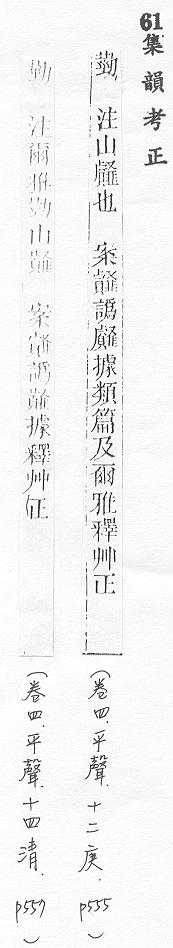 61集韻考正
葝　注山也　案䪥譌據類篇及爾雅釋艸正
(卷四.平聲.十二庚.p555)
葝　注爾雅葝山䪥　案譌據釋艸正
(卷四.平聲.十四清.p557)